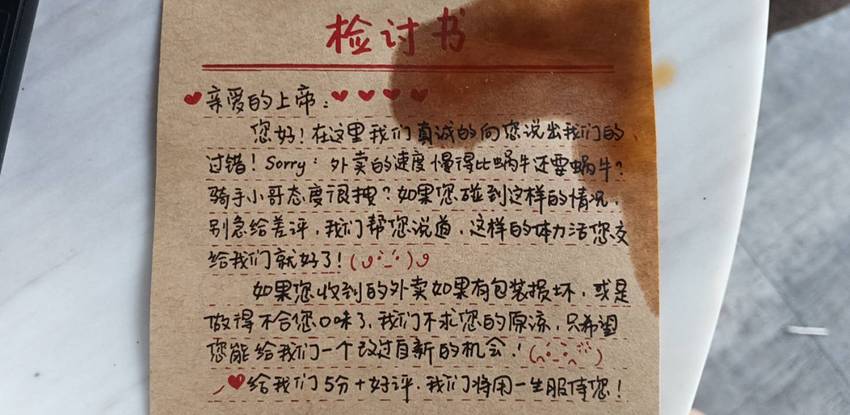 检讨书
亲爱的上帝：
您好！在这里我们真诚的向您说出我们的
过错！Sorry：外卖的速度慢得比蜗牛还要蜗牛？
骑手小哥态度很拽？如果您碰到这样的情况，
别急给差评，我们帮您说道，这样的体力活您交
给我们就好了！
如果您收到的外卖如果有包装损坏，或是
做得不合您口味了，我们不求您的原谅，只希望
您能给我们一个改过自新的机会！
给我们5分+好评，我们将用一生服侍您！